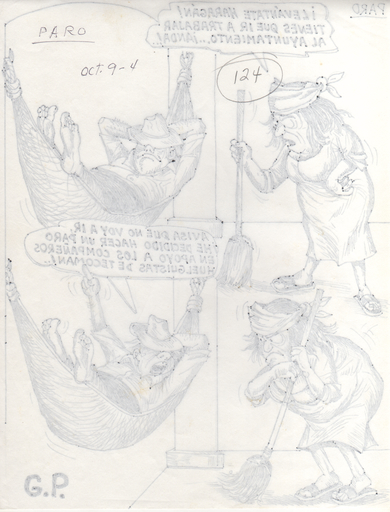 PARO
PARO
oct. 9-4
¡LEVÁNTATE HARAGÁN!
TIENES QUE IR A TRABAJAR
AL AYUNTAMIENTO...¡ANDA!
124
AVISA QUE NO VOY A IR,
HE DECIDIDO HACER UN PARO
EN APOYO A LOS COMPAÑEROS
HUELGUISTAS DE TECOMAN!...
G.P.